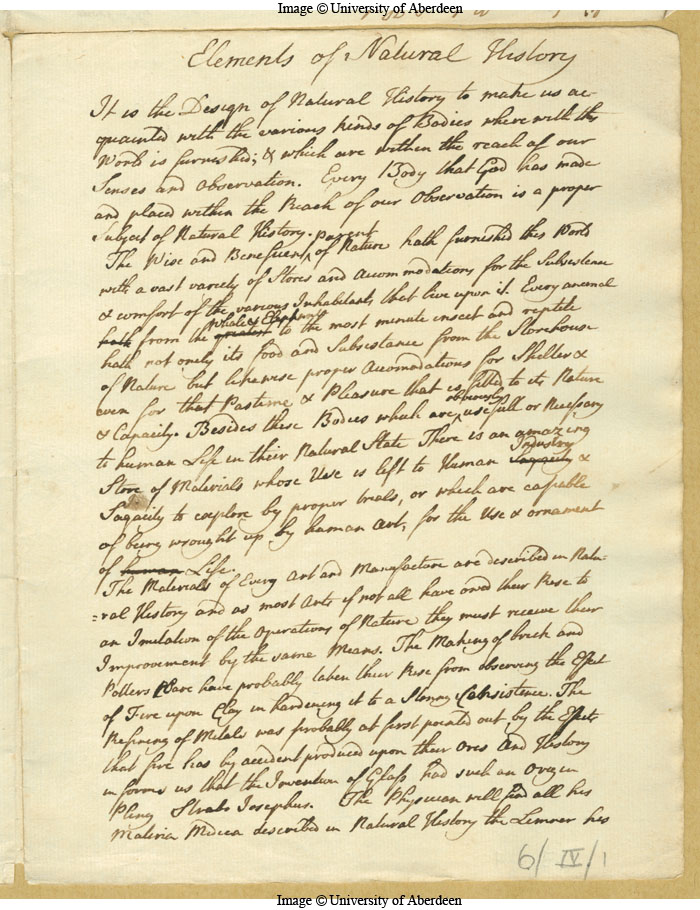 Image © University of Aberdeen
Elements of Natural History
It is the Design of Natural History to make us ac-
quainted with the various kinds of Bodies wherewith this
World is furnished; & which are within the reach of our
Senses and observation. Every Body that God has made
and placed within the Reach of our Observation is a proper
Subject of Natural History.
The Wise and Beneficent parent of Nature hath furnished this World
with a vast variety of Stores and Accommodations for the Subsistence
& comfort of the various Inhabitants that live upon it. Every animal
hath from the greatest Whale & Elephant to the most minute insect and reptile
hath not onely its food and Subsistance from the Storehouse
of Nature but likewise proper Accomodations for Shelter &
even for that Pastime & Pleasure that is fitted to its Nature
& Capacity. Besides these Bodies which are obviously usefull or Necessary
to human Life in their Natural State There is an amazing
Store of Materials whose Use is left to Human Sagacity Industry &
Sagacity to explore by proper trials, or which are capable
of being wrought up by human Art, for the Use & ornament
of human Life.
The Materials of Every Art and Manufacture are described in Natu=
=ral History and as most Arts if not all have owed their Rise to
an Imitation of the Operations of Nature they must receive their
Improvement by the same Means. The Making of brick and
Potters Ware have probably taken their Rise from observing the Effect
of Fire upon Clay in hardening it to a Stonny Consistence. The
Refining of Metals was probably at first pointed out by the Effects
that fire has by accident produced upon their Ores And History
informs us that the Invention of Glass had such an Origin
Pliny Strabo Josephus. The Physician will find all his
Materia Medica described in Natural History the Limner his
6/IV/1
Image © University of Aberdeen